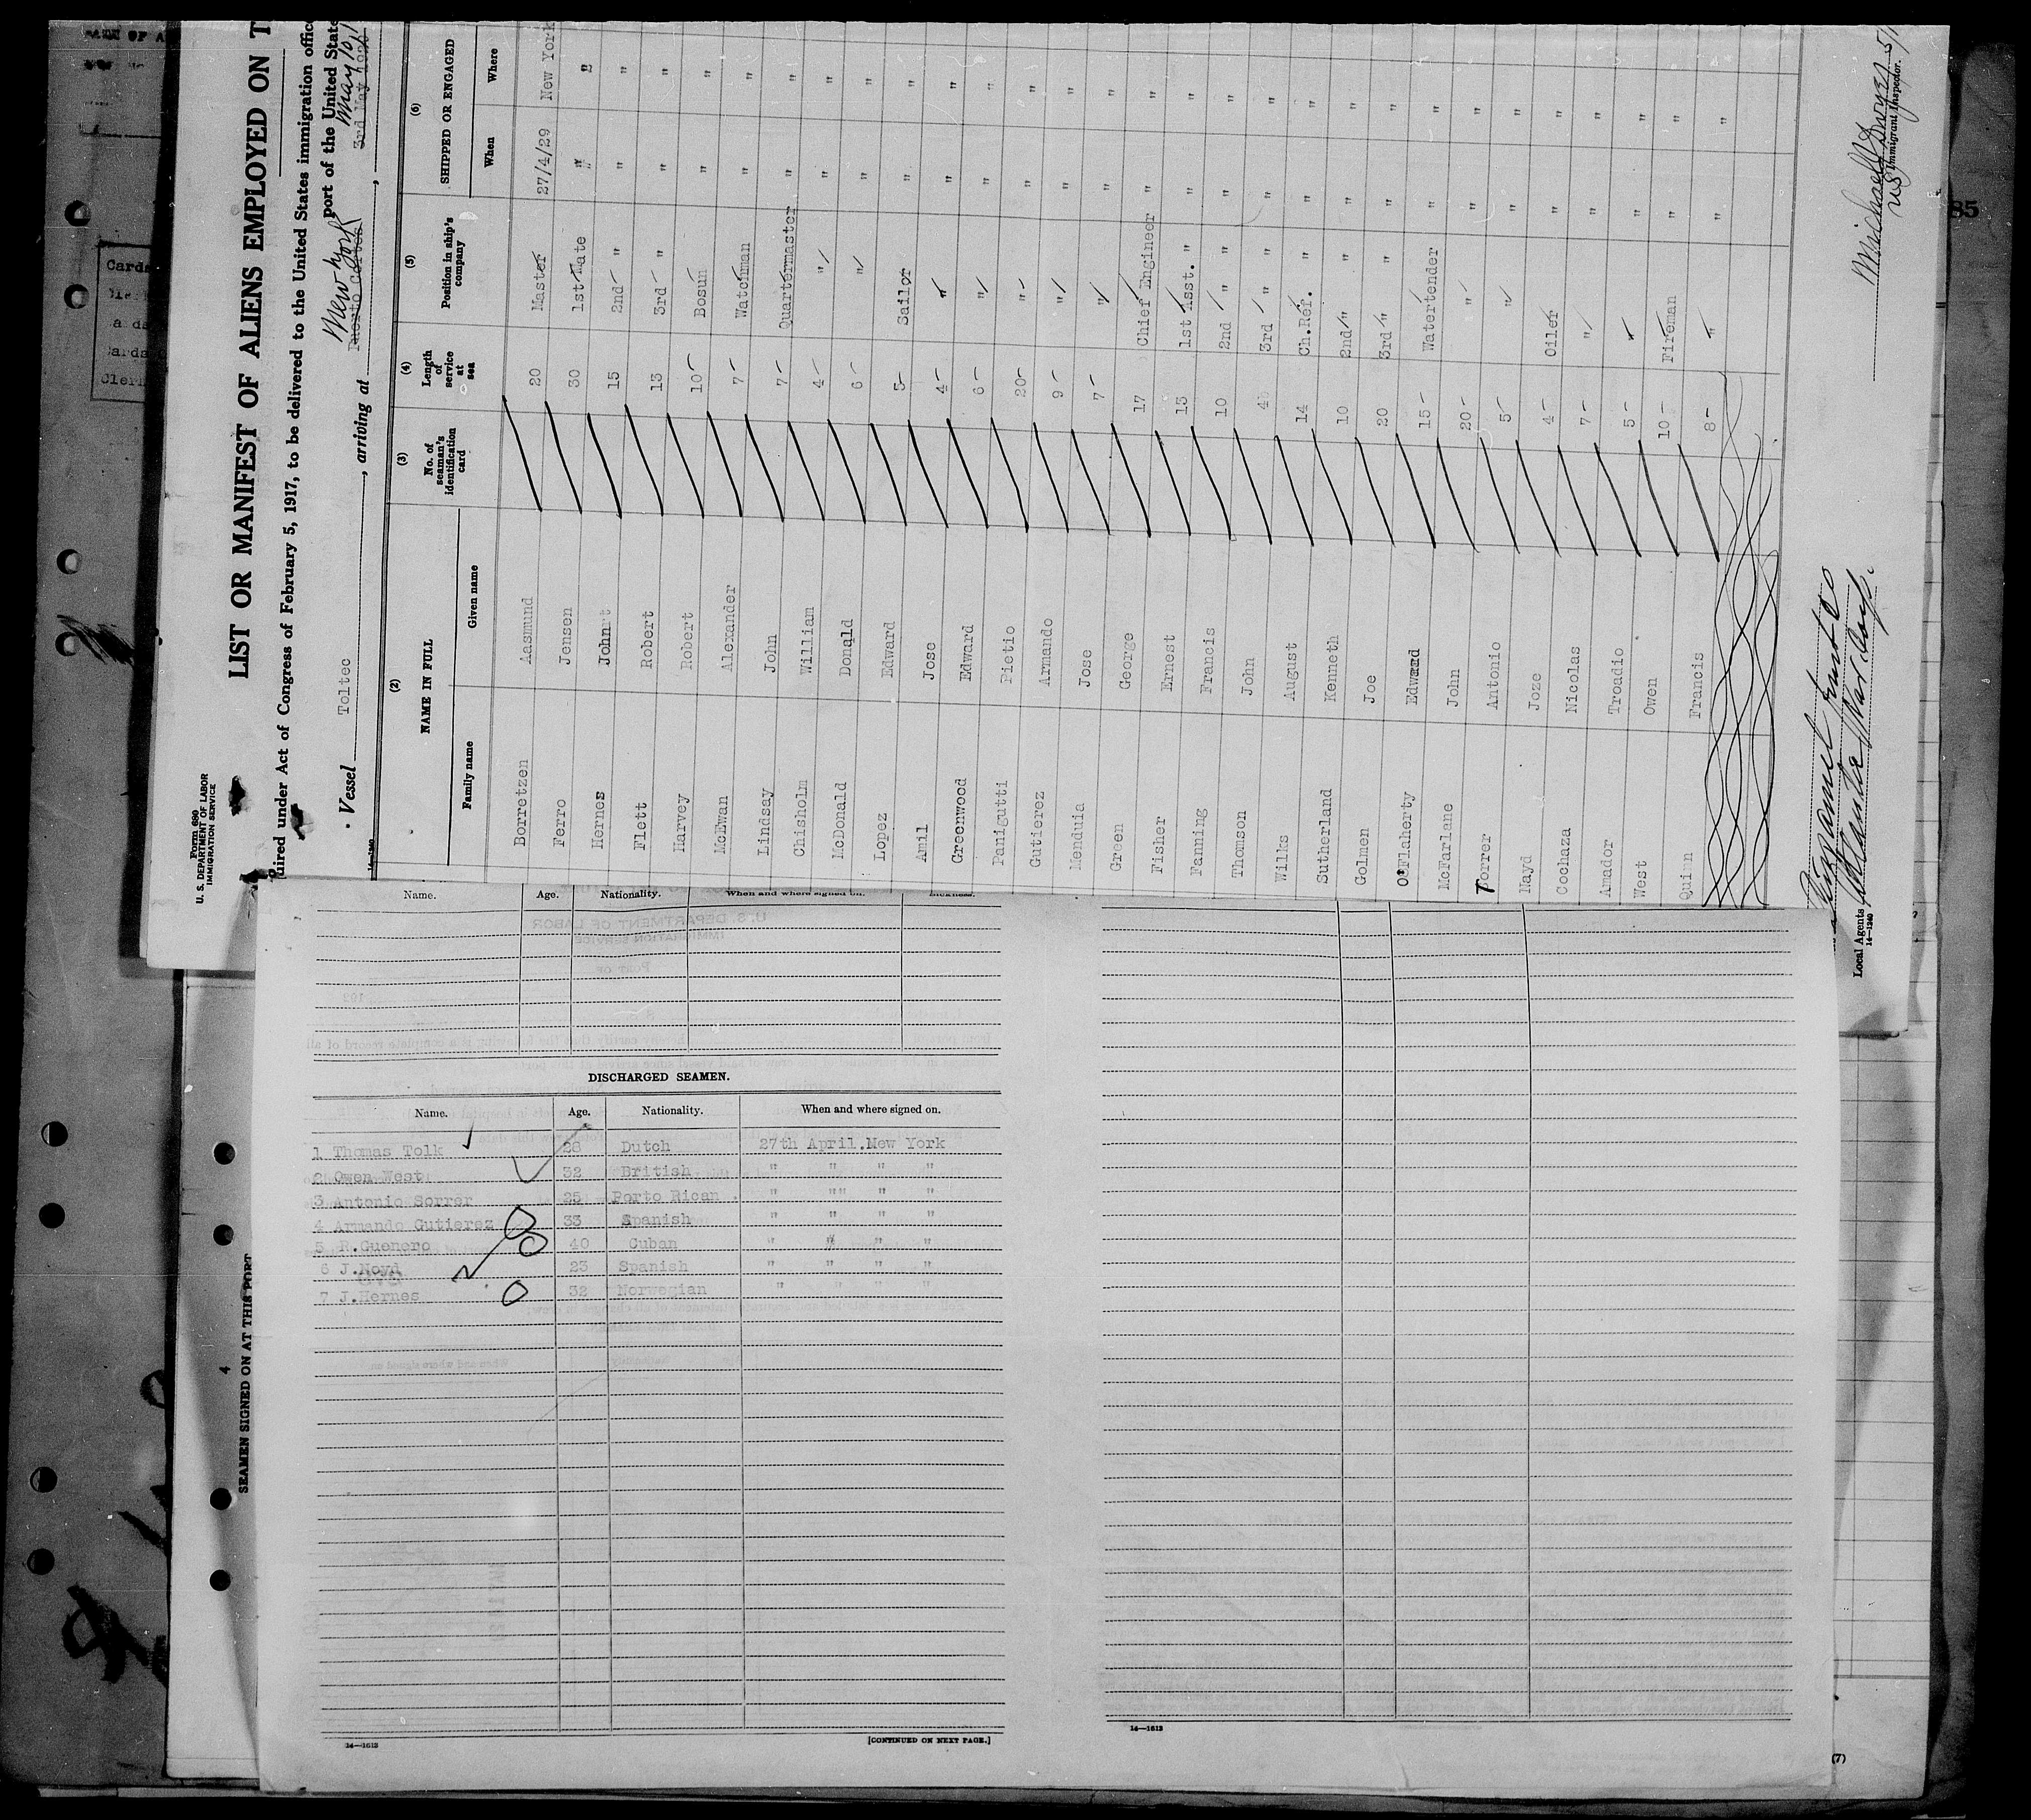 Form 680
U. S. DEPARTMENT OF LABOR
IMMIGRATION SERVICE
LIST OR MANIFEST OF ALIENS EMPLOYED ON T
uired under Act of Congress of February 5, 1917, to be delivered to the United States immigration offic
port of the United State
Vessel Toltec, arriving at Puerto Cortes New York, 3rd May 1929 May 10,
(2) (3) (4) (5) (6)
NAME IN FULL No. of seaman's identification card Length of service at sea Position in ship's company SHIPPED OR ENGAGED
Family name Given name When Where
Borretzen Aasmund 20 Master 27/4/29 New York
Ferro Jensen 30 1st Mate " "
Hernes John 15 2nd " " "
Flett Robert 13 3rd " " "
Harvey Robert 10 Bosun " "
McEwan Alexander 7 Watchman " "
Lindsay John 7 Quartermaster " "
Chisholm Willian 4 " " "
McDonald Donald 6 " " "
Lopez Edward 5 Sailor " "
Amil Jose 4 " " "
Greenwood Edward 6 " " "
Panigutti Pietio 20 " " "
Gutierez Armando 9 " " "
Menduia Jose 7 " " "
Green George 17 Chief Engineer " "
Fisher Ernest 13 1st Asst. " " "
Fanning Francis 10 2nd " " " "
Thomson John 4 3rd " " " "
Wilks August 14 Ch.Ref. " " "
Sutherland Kenneth 10 2nd " " " "
Golmen Joe 20 3rd " " " "
O'Flaherty Edward 15 Watertender " "
McFarlane John 20 " " "
Torrer Antonio 5 " " "
Nayd Joze 4 Oiler " "
Cochaza Nicolas 7 " " "
Amador Troadio 5 " " "
West Owen 10 Fireman " "
Quin Francis 8 " " "
Immigrant Inspector.
Local Agents
14—1240
85
Cards
Name. Age. Nationality. When and where signed on. Sickness.
DISCHARGED SEAMEN.
Name. Age. Nationality. When and where signed on.
1 Thomas Tolk 28 Dutch 27th April.New York
2 Owen West 32 British " " " "
3 Antonio Sorrer 25 Porto Rican . " "" " "
4 Armando Gutierez 33 Spanish " " " "
5 R.Guenero 40 Cuban " " " "
6 J.Noyd 23 Spanish " " " "
7 J.Hernes 32 Norwegian " " " "
14—1613
[CONTINUED ON NEXT PAGE.]
14—1613
(7)
4
SEAMEN SIGNED ON AT THIS PORT